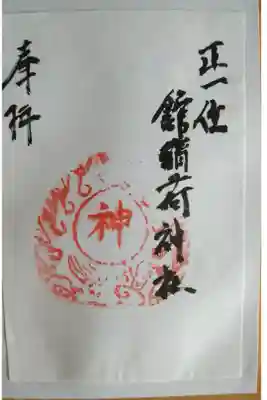 正一位
館稲荷神社
奉拝
神